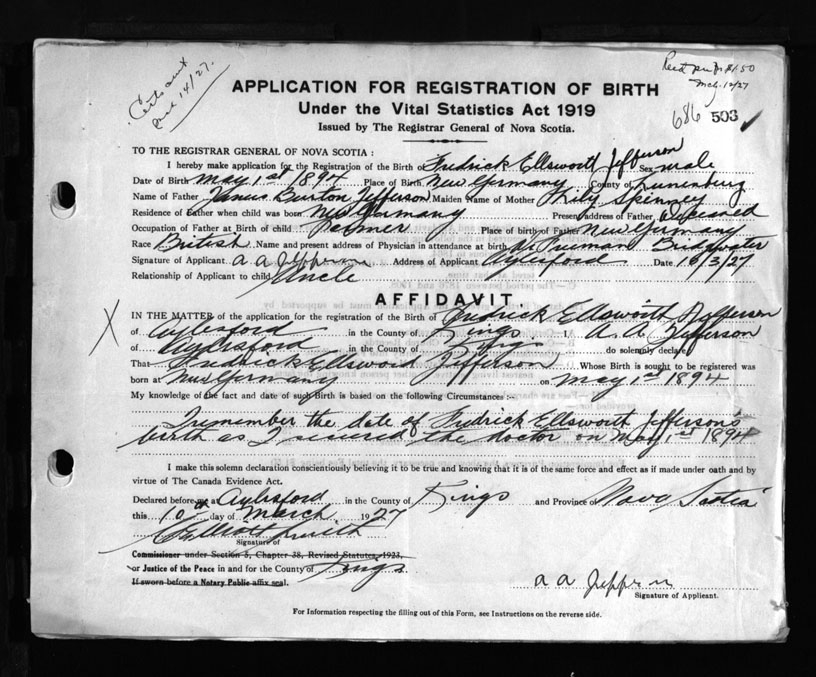 Certs sent
Mch 14/27.
Recd $1.50
Mch. 12/27
686 503 ✓
APPLICATION FOR REGISTRATION OF BIRTH
Under the Vital Statistics Act 1919
Issued by The Registrar General of Nova Scotia.
TO THE REGISTRAR GENERAL OF NOVA SCOTIA :
I hereby make application for the Registration of the Birth of Fredrick Ellsworth Jefferson Sex male
Date of Birth May 1st 1894 Place of Birth New Germany County of Lunenburg
Name of Father James Burton Jefferson Maiden Name of Mother Spinney
Residence of Father when child was born New Germany Present address of Father Deceased
Occupation of Father at Birth of child Place of birth of Father New Germany
Race British Name and present address of Physician in attendance at birth Dr Freeman Bridgwater
Signature of Applicant A A Jefferson Address of Applicant Aylesford Date 10/3/27
Relationship of Applicant to child Uncle
AFFIDAVIT
IN THE MATTER of the application for the registration of the Birth of Fredrick Ellsworth Jefferson
of Aylesford in the County of Kings I A. A. Jefferson
of Aylesford in the County of Kings do solemnly declare
That Fredrick Ellsword Jefferson Whose Birth is sought to be registered was
born at New Germany on May 1st 1894
My knowledge of the fact and date of such Birth is based on the following Circumstances :-
I remember the date of Fredrick Ellsworth Jefferson's
birth as I secured the doctor on May 1st 1894
I make this solemn declaration conscientiously believing it to be true and knowing that it is of the same force and effect as if made under oath and by
virtue of The Canada Evidence Act.
Declared before me at Aylesford in the County of Kings and Province of Nova Scotia
this 10th day of March 1927
Signature of
Commissioner under Section 5, Chapter 38, Revised Statutes, 1923,
or Justice of the Peace in and for the County of Kings
If sworn before a Notary Public affix seal.
A A Jefferson
Signature of Applicant.
For Information respecting the filling out of this Form, see Instructions on the reverse side.